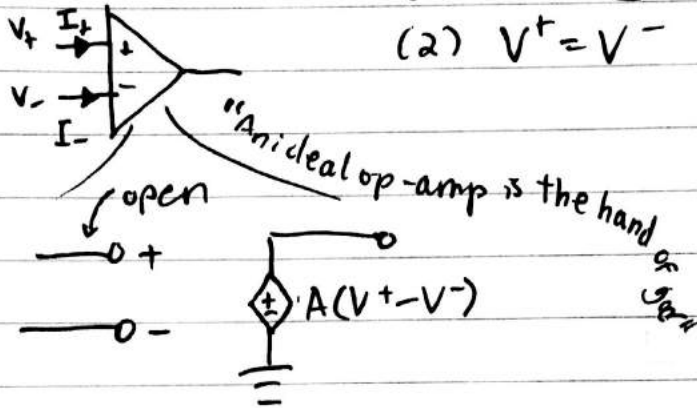 V+ I+ +
(2) V⁺ = V⁻
V- -
I-
"An ideal op-amp is the hand of
open
+
± A(V⁺-V⁻)
-